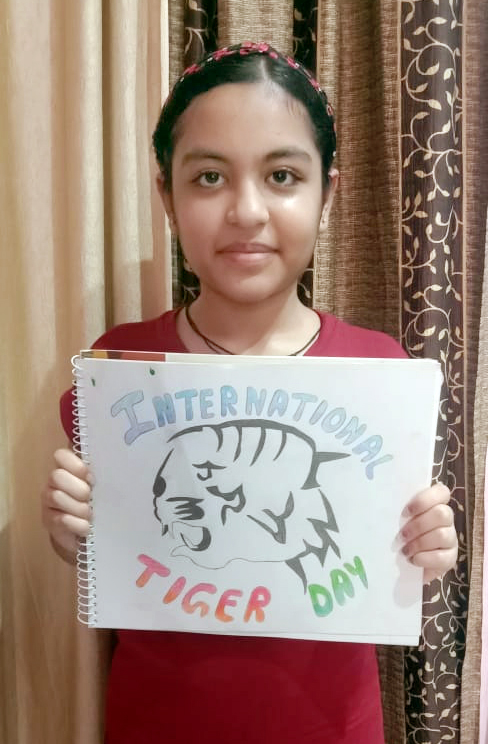 INTERNATIONAL
TIGER DAY